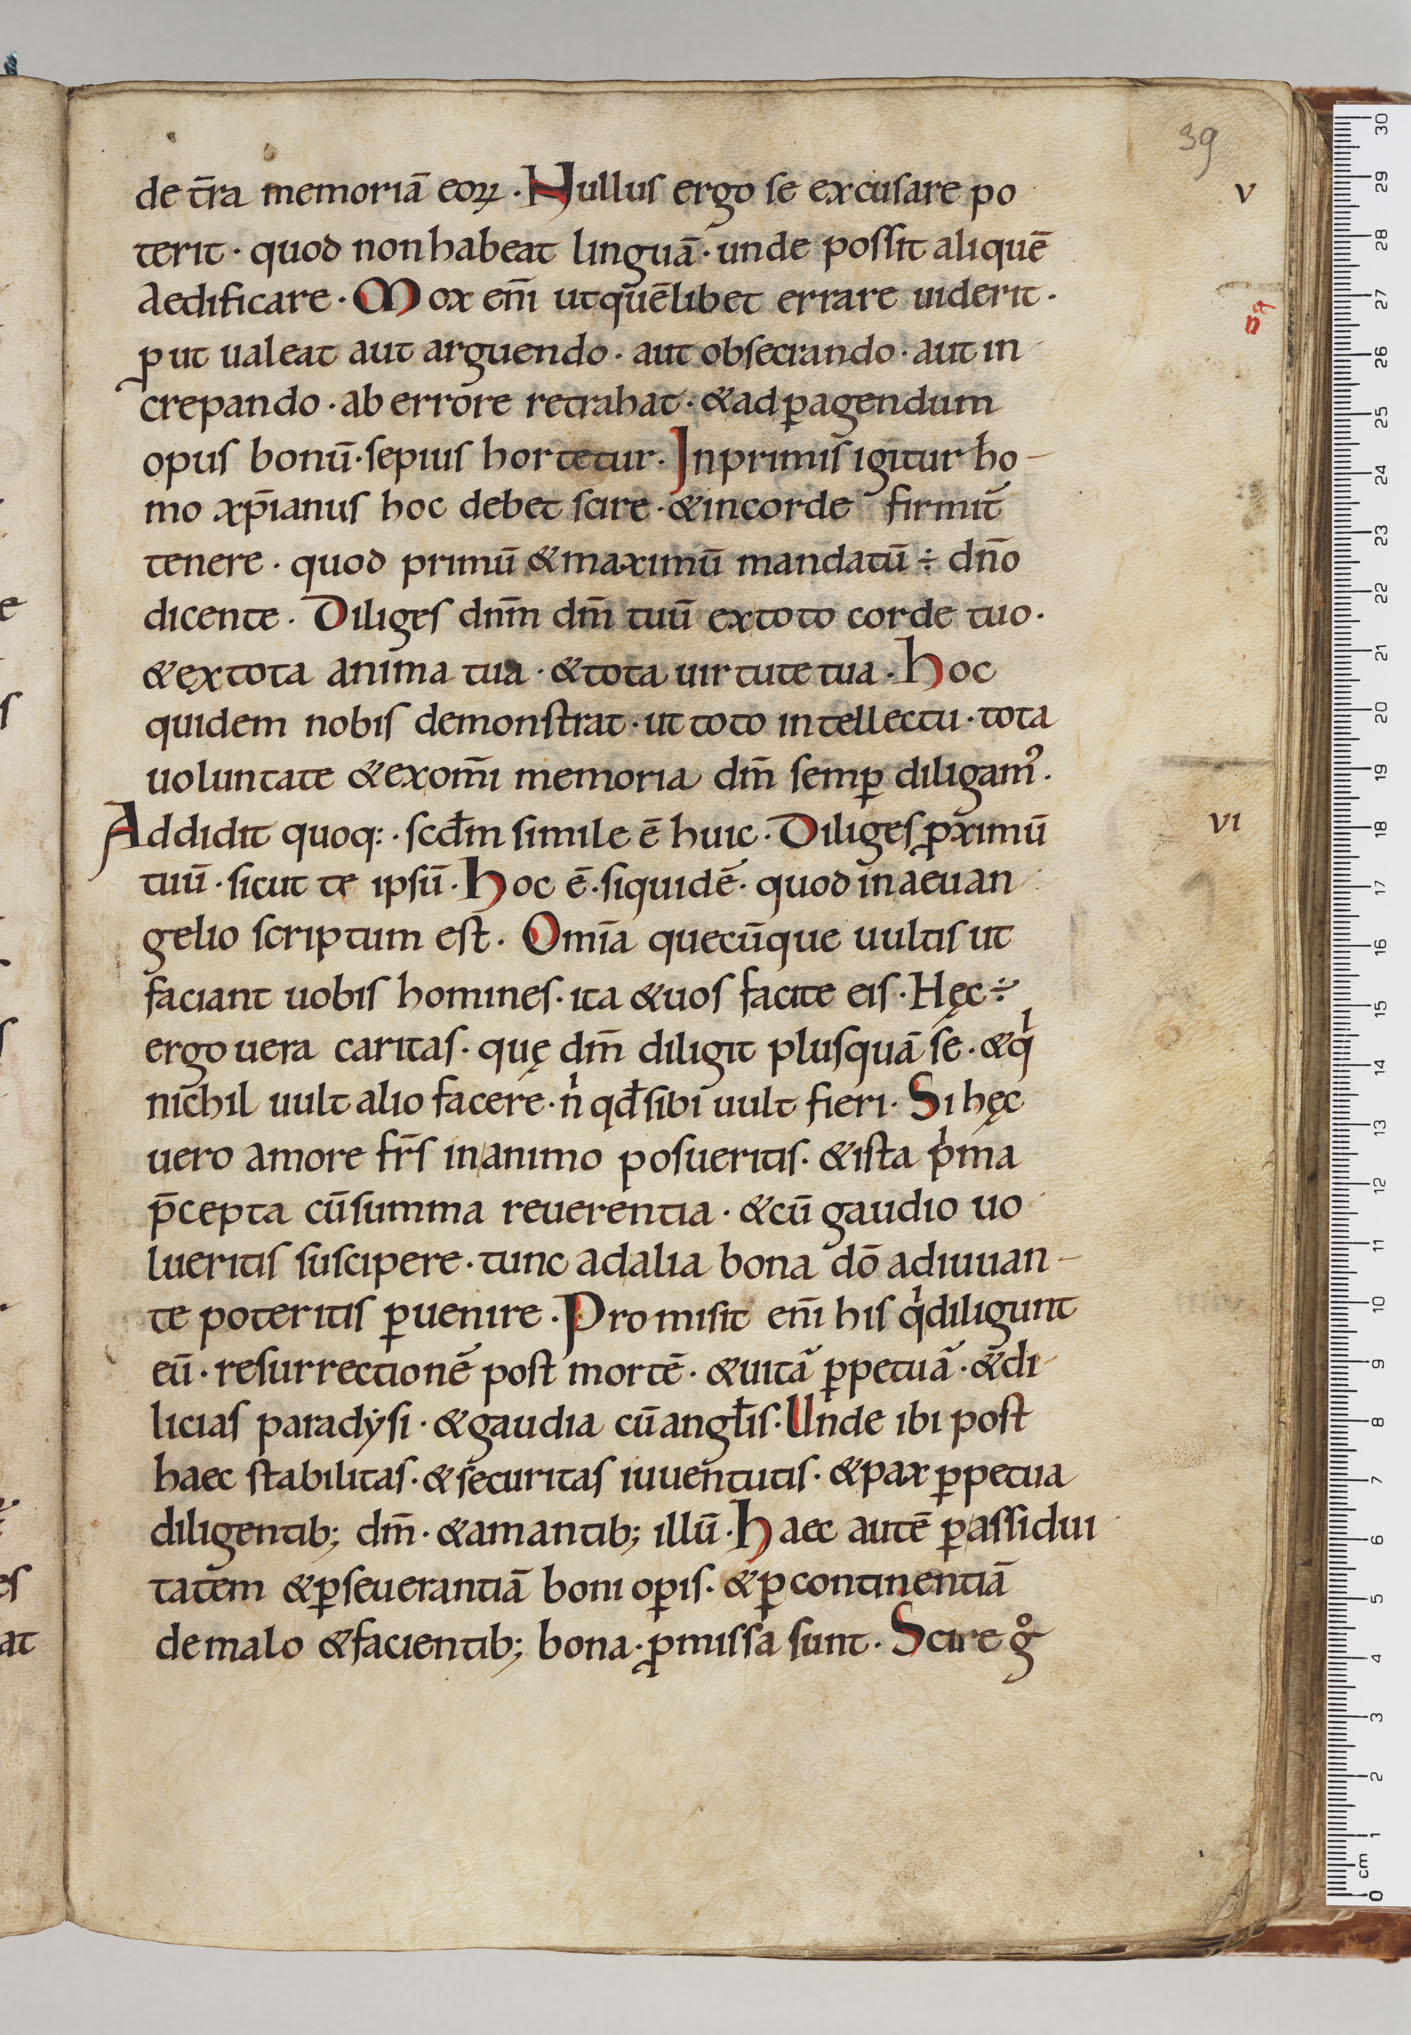 39
de t̄ra memoriā eoꝝ · Nullus ergo se excusare po
v
terit · quod non habeat linguā · unde possit aliquē
aedificare · Mox em̄ ut quēlibet errare uiderit ·
ꝓut ualeat aut arguendo · aut obsecrando · aut in
crepando · ab errore retrahat · & ad ꝑagendum
opus bonū · sepius hortetur · Inprimis igitur ho-
mo xp̄ianus hoc debet scire · & in corde firmit̄
tenere · quod primū & maximū mandatū ÷ dn̄o
dicente · Diliges dn̄m dm̄ tuū ex toto corde tuo ·
& ex tota anima tua · & tota uirtute tua · Hoc
quidem nobis demonstrat · ut toto intellectu · tota
uoluntate & ex om̄i memoria dm̄ semꝑ diligam᾽ ·
Addidit quoq: · scdm̄ simile ē huic · Diliges ꝓximū
vi
tuū · sicut te ipsū · Hoc ē · siquidē · quod in aeuan
gelio scriptum est̄ · Om̄ia quecūque uultis ut
faciant uobis homines · ita & uos facite eis · Hęc ÷
ergo uera caritas · quę dm̄ diligit plusquā se · & qi
nichil uult alio facere · ni qđ sibi uult fieri · Si hęc
uero amore fr̄s in animo posueritis · & ista pima
p̄cepta cū summa reuerentia · & cū gaudio uo
lueritis suscipere · tunc ad alia bona dō adiuuan-
te poteritis ꝑuenire · Promisit em̄ his qi diligunt
eū · resurrectionē post mortē · & uitā ꝑpetuā · & di-
licias paradẏsi · & gaudia cū angłis · Unde ibi post
haec stabilitas · & securitas iuuentutis · & pax ꝑpetua
diligentib; dm̄ · & amantib; illū · Haec autē ꝑ assidui
tatem & ꝑseuerantiā boni oꝑis · & ꝑ continentiā
de malo & facientib; bona · ꝓmissa sunt · Scire go